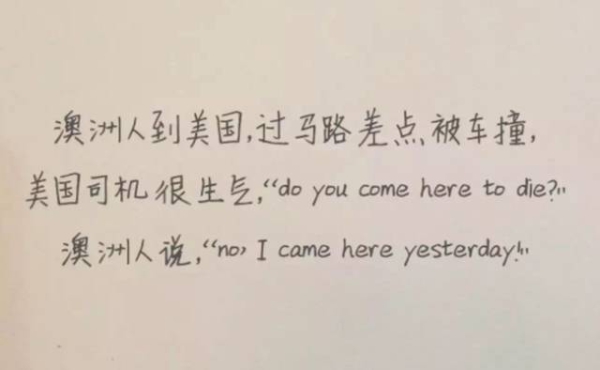 澳洲人到美国,过马路差点被车撞,
美国司机很生气,“do you come here to die?”
澳洲人说,“no, I came here yesterday!”